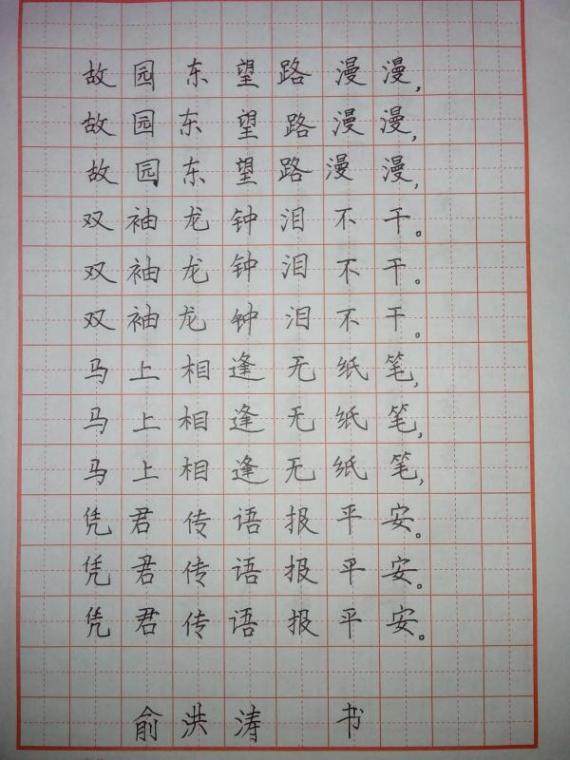 故园东望路漫漫，
故园东望路漫漫，
故园东望路漫漫，
双袖龙钟泪不干。
双袖龙钟泪不干。
双袖龙钟泪不干。
马上相逢无纸笔，
马上相逢无纸笔，
马上相逢无纸笔，
凭君传语报平安。
凭君传语报平安。
凭君传语报平安。
俞洪涛 书